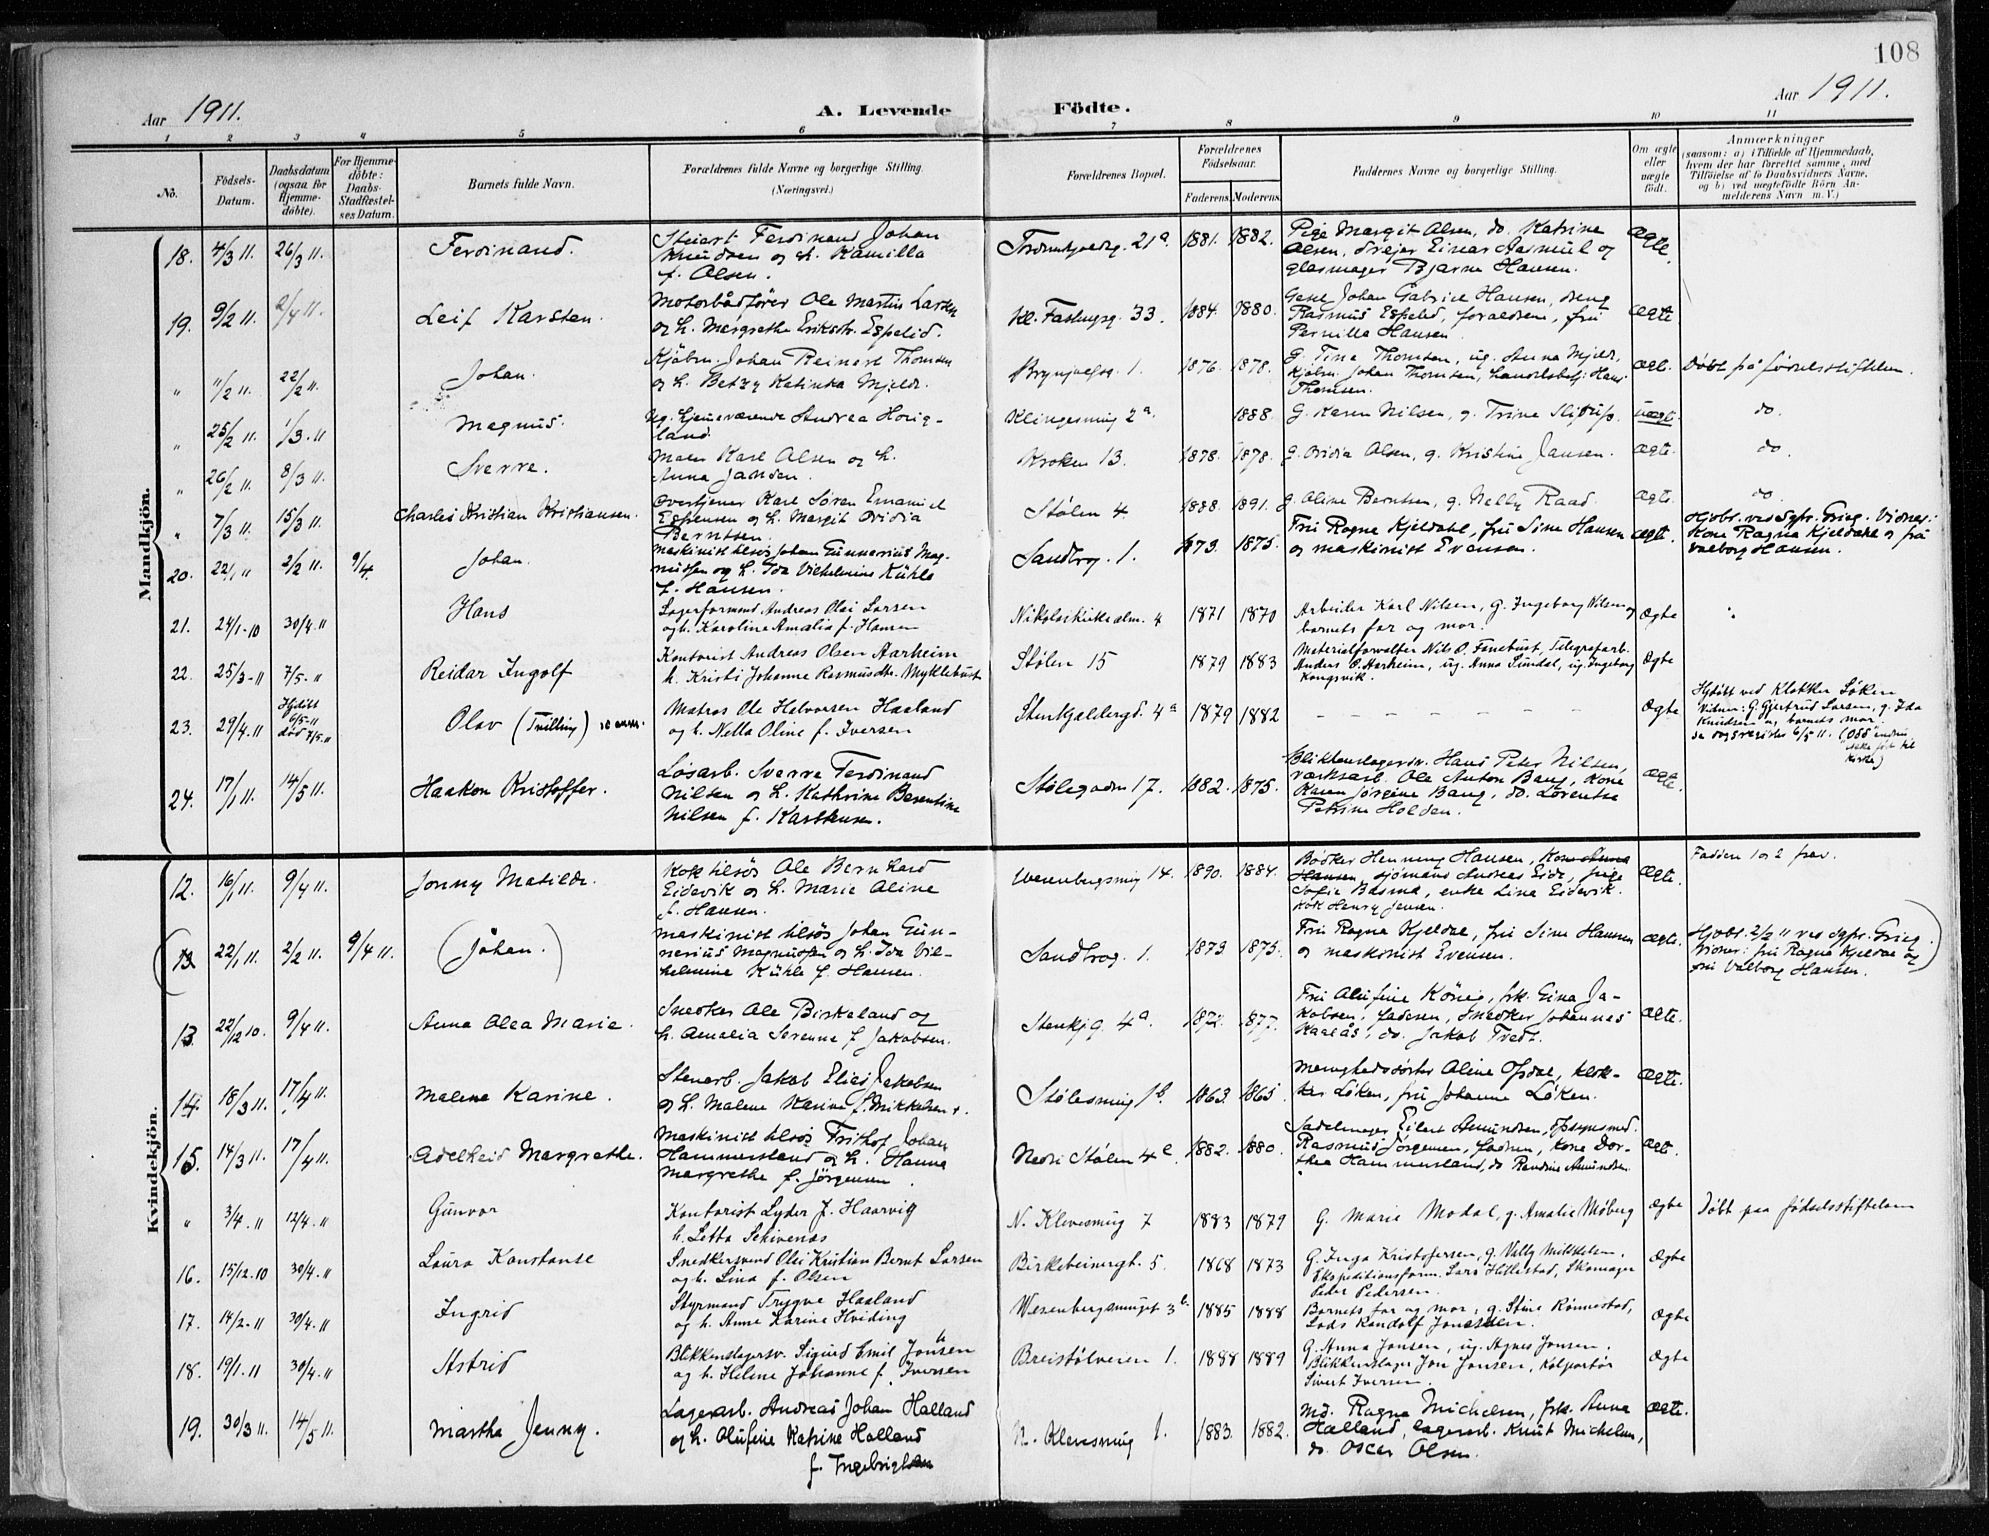 108
Aar 1911.
A. Levende Födte.
Aar 1911.
1 2 3 4 5 6 7 8 9 10 11
No.
Födsels-Datum.
Daabsdatum (ogsaa for Hjemmedöbte).
For Hjemmedöbte: Daabs-Stadfæstelses Datum.
Barnets fulde Navn.
Forældrenes fulde Navne og borgerlige Stilling. (Næringsvei.)
Forældrenes Bopæl.
Forældrenes Födselsaar.
Faderens. Moderens.
Faddernes Navne og borgerlige Stilling.
Om ægte eller uægte födt.
Anmærkninger
(saasom: a) i Tilfælde af Hjemmedaab, hvem der har forrettet samme, med Tilföielse af to Daabsvidners Navne, og b) ved uegtefödte Börn Anmelderens Navn m. V.)
Mandkjön.
18. 4/3 11. 26/3 11. Ferdinand.
Stuert Ferdinand Johan
Knudsen og h. Kamilla
f. Olsen.
21a 1881. 1882.
Pige Margit Olsen, do. Katrine
Olsen, drejer Einar Rasmus og
glasmager Bjarne Hansen.
Ægte.
19. 9/2 11. 2/4 11. Leif Karsten.
Motorbådfører Ole Martin Larsen
og h. Margrethe Eriksdtr. Espelid.
33. 1884. 1880.
Johan Gabriel Hansen, dreng
Rasmus Espelid, forældrene, fru
Pernille Hansen.
ægte
" 11/2 11. 22/2 11. Johan.
Kjøbm. Johan Reinert Thomsen
og h. Betzy Katinka Mjelde.
Brynjolfsg. 1. 1876. 1878.
G. Tina Thomsen, ug. Anna Mjelde,
kjøbm. Johan Thomsen, handelsbetj. Hans
Thomsen.
ægte. Døbt på fødselsstiftelsen.
" 25/2 11. 1/3 11. Magnus.
Ug. hjemmeværende Andrea Horig-
land.
Klingesmug 2a. 1888. G. Karen Nilsen, g. Trine uægte. do.
" 26/2 11. 8/3 11. Sverre.
Maler Karl Olsen og h.
Anna Jansen.
Kroken 13. 1878. 1878. g. Ovidia Olsen, g. Kristine Jansen. ægte. do.
" 7/3 11. 15/3 11. Charles Kristian Kristiansen.
Overtjener Karl Søren Emanuel
Espensen og h. Margit Ovidia
Berntsen.
Stølen 4 1888. 1891. g. Oline Berntsen, g. Nelly Raad. ægte. do.
20. 22/1 11 2/2 11. 9/4. Johan.
Maskinist tilsøs Johan Gunnerius Mag-
nussen og h. Ida Vilhelmine Kühle
f. Hansen.
Sandbrog. 1. 1873. 1875.
Fru Ragna Kjeldahl, fru Sina Hansen
og maskinist Evensen.
ægte.
Hjdbt. ved Sgpr. Grieg. Vidner:
Kone Ragna Kjeldahl og fru
Valborg Hansen.
21. 24/1-10 30/4 11 Hans
Lagerformand Andreas Olai Larsen
og h. Karoline Amalia f. Hansen
Nikolaikirkealm. 4 1871 1870
Arbeider Karl Nilsen, g. Ingeborg Nilsen og
barnets far og mor.
Ægte
22. 25/3-11 7/5 11 Reidar Ingolf
Kontorist Andreas Olsen Aarheim
h. Kristi Johanne Rasmusdtr. Myklebust
Stølen 15 1879 1883
Materialforvalter Nils O. Fanebust, Telegrafarb.
Anders O. Aarheim, ug. Anna Sundal, ug. Ingeborg
Kongsvik.
Ægte
23. 29/4 11 Hjdøbt 6/5-11 død 7/5 11 Olav (Tvilling)
Matros Ole Halvorsen Haaland
og h. Nella Oline f. Iversen
Stenkjeldergd. 4a 1879 1882 – – – – – – – Ægte
Hjdøbt ved Klokker Løken
Vidner: G. Gjertrud Larsen, g. Ida
Knudsen og barnets mor.
24. 17/1 11. 14/5 11. Haakon Kristoffer.
Løsarb. Sverre Ferdinand
Nilsen og h. Kathrine Berentine
Nilsen f. Karstensen.
Stølegaden 17. 1882. 1875.
Blikkenslagersv. Hans Peter Nilsen,
værksarb. Ole Anton Bang, kone
Karen Jørgine Bang, do. Lorentze
Petrine Holden.
Ægte.
Kvindekjön.
12. 16/1 11. 9/4 11. Jonny Matilde.
Kok tilsøs Ole Bernhard
Eidevik og h. Marie Oline
f. Hansen.
Wesenbergsmug 14. 1890. 1884.
Bødker Henning Hansen, Kone Anna
Hansen, sjømand Andreas Eide, pige
Sofie Basma, enke Lina Eidevik.
Kok Henry Jensen.
Ægte. Faddere 1 og 2 frav.
(13 22/1 11. 2/2 11. 9/4 11. (Johan.)
Maskinist tilsøs Johan Gun-
nerius Magnussen og h. Ida Vil-
helmine Kühle f. Hansen.
Sandbrog. 1. 1873 1875.
Fru Ragna Kjeldal, fru Sina Hansen
og maskinist Evensen.
ægte.
Hjdbt. 2/2 11 ved sgpr. Grieg.
Vidner: fru Ragna Kjeldal og
fru Valborg Hansen.)
13. 22/12 10. 9/4 11. Anna Olea Marie.
Snedker Ole Birkeland og
h. Amalia Serenne f. Jakobsen.
Stenkjg. 4a. 1872. 1877.
Fru Olufine König, frk. Gina Ja-
kobsen, faderen, snedker Johannes
Kaalås, do. Jakob Tvedt.
ægte.
14. 18/3 11. 17/4 11. Malene Karine.
Stenarb. Jakob Elias Jakobsen
og h. Malene Karine f. Mikkelsen +.
Stølesmug 1b. 1863. 1865.
Menighedssøster Oline Opdal, klok-
ker Løken, fru Johanne Løken.
ægte.
15. 14/3 11. 17/4 11. Adelheid Margrethe.
Maskinist tilsøs Frithof Johan
Hammersland og h. Hanna
Margrethe f. Jørgensen.
Nedre Stølen 4c. 1882. 1880.
Sadelmager Eilert Amundsen, opsynsmd.
Rasmus Jørgensen, faderen, kone Dor-
thea Hammersland, do Randine Amundsen
ægte.
" 3/4 11 12/4 11 Gunvor
Kontorist Lyder f. Haarvig
h. Letta Schivenæs
N. Klevesmug 7 1883 1879 G. Marie Modal, g. Amalie Møberg Ægte Døbt paa fødselsstiftelsen
16. 15/12-10 30/4 11 Laura Konstanse
Snedkersvend Olai Kristian Bernt Larsen
og h. Lina f. Olsen
Birkebeinergt. 5. 1868 1873
G. Inga Kristofersen, g. Vally Mikkelsen.
Ekspeditionsform. Lars Hillestad, Skomager
Peder Pedersen.
Ægte
17. 14/2-11 30/4 11 Ingrid
Styrmand Trygve Haaland
og h. Anna Karine Hviding
Wesenbergsmuget 3b. 1885 1888
Barnets far og mor, g. Stine Rönnestad,
Lods Randolf Jonassen.
Ægte
18. 19/1-11 30/4 11 Astrid
Blikkenslagersv. Sigurd Emil Jonsen
og h. Helene Johanne f. Iversen
Breistølveien 1. 1888 1889
G. Anna Jonsen, ug. Agnes Jonsen.
Blikkenslager Jon Jonsen, Kolportør
Sivert Iversen.
Ægte
19. 30/3 11. 14/5 11. Martha Jenny.
Lagerarb. Andreas Johan Halland
og h. Olufine Katrine Halland
f. Ingebrigtsen
N. Klevesmug 1. 1883. 1882.
Md. Ragna Michelsen, frk. Anna
Halland, lagerarb. Knut Michelsen,
do. Oscar Olsen.
ægte.